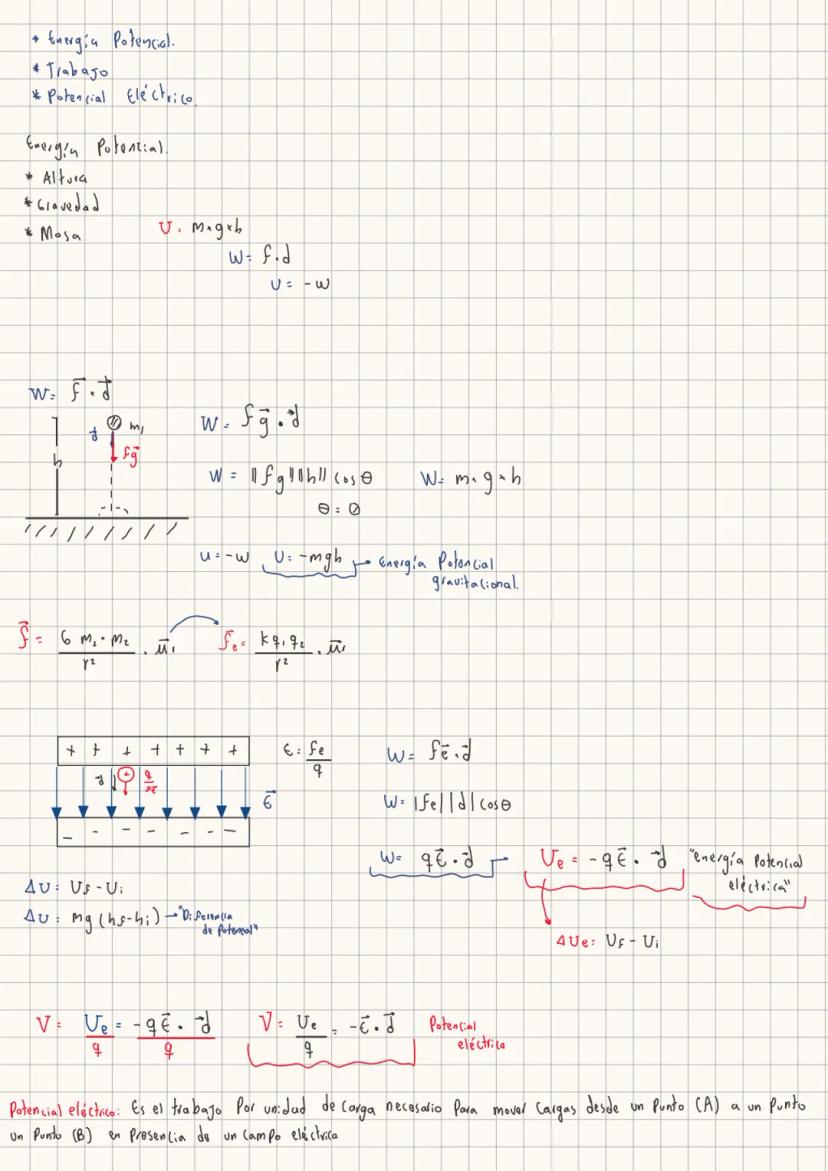 * Energía Potencial.
* Trabajo
* Potencial Eléctrico.
Energía Potencial.
* Altura
* Gravedad
* Masa
U = m×g×h
W = f·d
U = -w
W = f⃗ · d⃗
d
m₁
h
fg⃗
W = fg⃗ · d⃗
W = ||fg|| ||h|| cos θ
θ = 0
W = m×g×h
u = -w U = -mgh → Energía Potencial
gravitacional.
f⃗ = G m₁·m₂ / r² · u⃗r
f⃗e = k q₁ q₂ / r² · u⃗r
+ + + + + + +
- - - - - - -
d⃗
+
ε⃗
ε = fe / q
W = fe⃗ · d⃗
W = |fe| |d| cos θ
W = qε⃗ · d⃗
Ue = -qε⃗ · d⃗ "energía potencial
eléctrica"
ΔU = Uf - Ui
ΔU = mg (hf-hi) → "Diferencia
de Potencial"
ΔUe = Uf - Ui
V = Ue / q = -qε⃗ · d⃗ / q
V = Ue / q = -ε⃗ · d⃗ Potencial
eléctrico
Potencial eléctrico: Es el trabajo Por unidad de carga necesario Para mover Cargas desde un Punto (A) a un Punto
un Punto (B) en Presencia de un Campo eléctrico